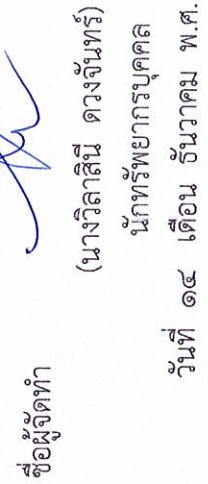 ชื่อผู้จัดทำ
(นางวิลาสินี ดวงจันทร์)
นักทรัพยากรบุคคล
วันที่ ๑๔ เดือน ธันวาคม พ.ศ.